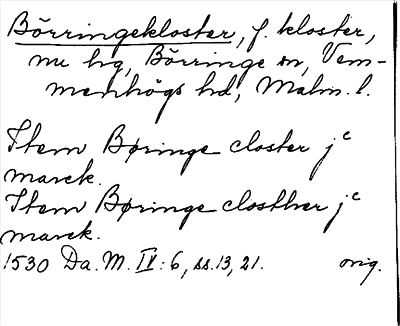 Börringekloster, f. kloster,
nu hg, Börringe sn, Vem-
menhögs hd, Malm. l.
Item Børinge closter jᶜ
marck.
Item Børinge closther jᶜ
marck.
1530 Da. M. IV: 6, ss. 13, 21. orig.